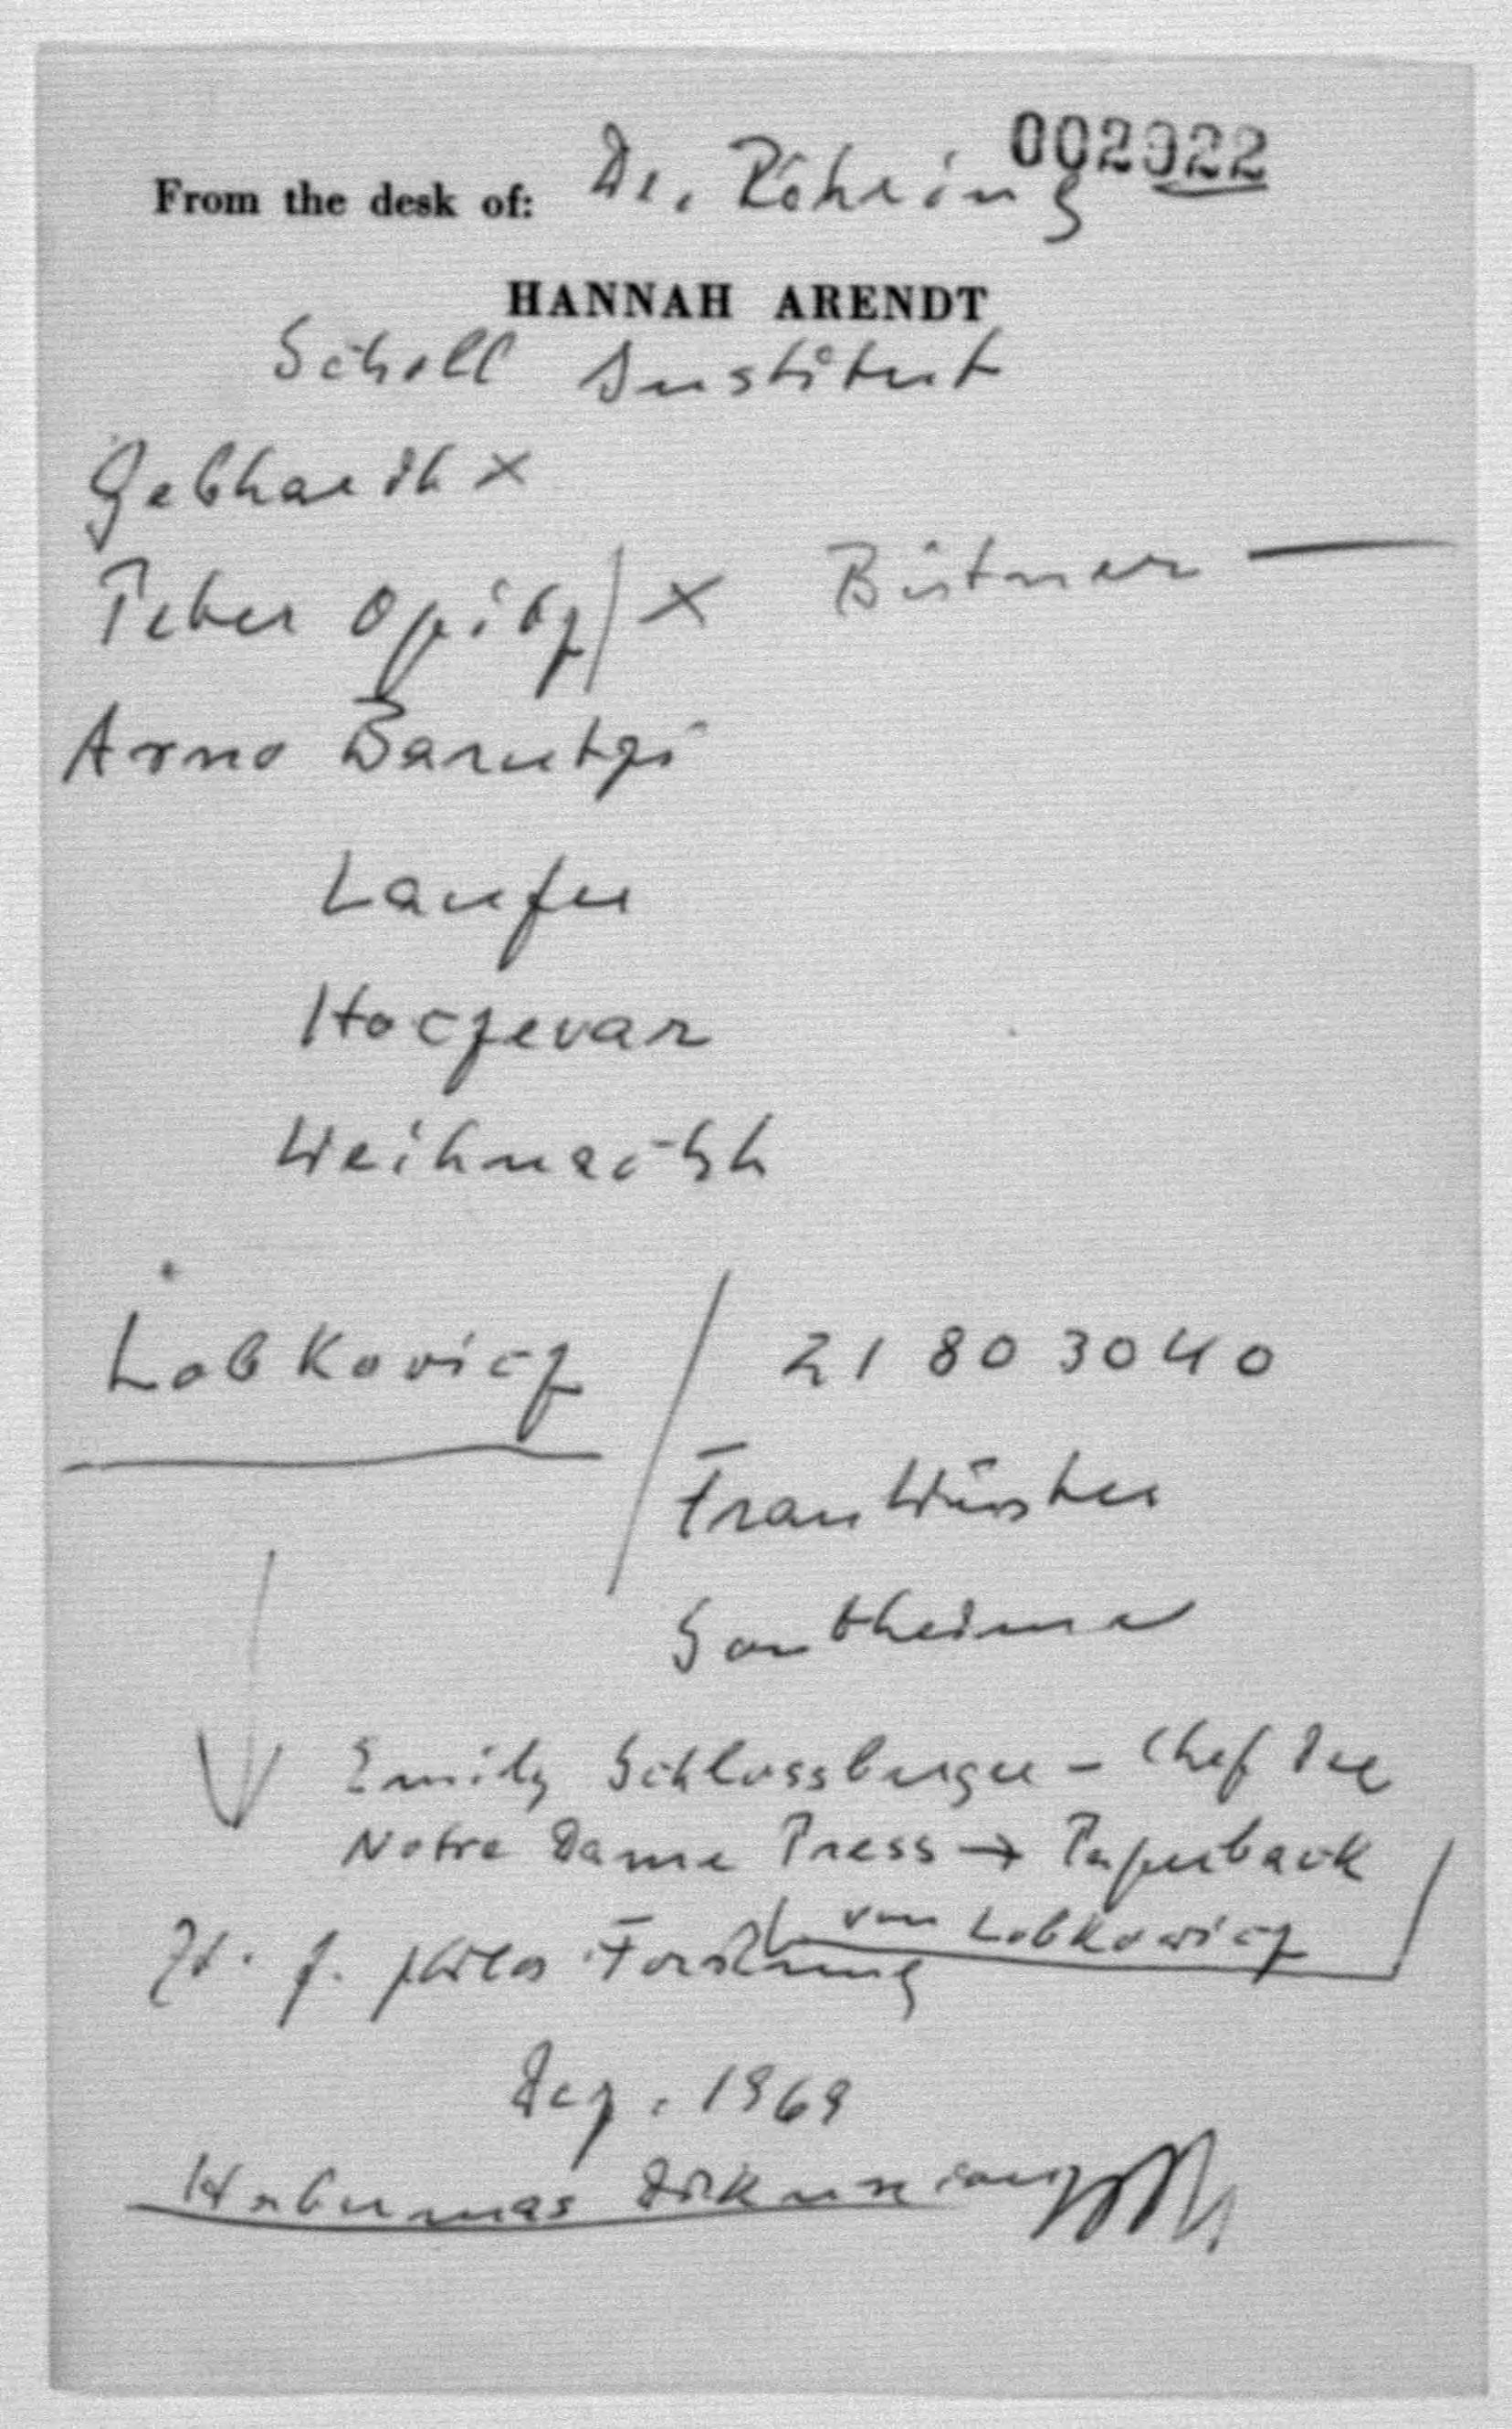 002922
From the desk of: Dr. Röhring
HANNAH ARENDT
Scholl Institut
Gebhardt x
Peter Opitz / x Bütner —
Arno Baruzzi
Laufer
Hoczevar
Weihnacht
Lobkovicz / 21 80 3040
Frau Würster
Sontheimer
Emily Schlossberger - Chef der
Notre Dame Press → Paperback
von Lobkowicz
Zt. f. philos Forschung
Dez. 1969
Habermas Diskussion